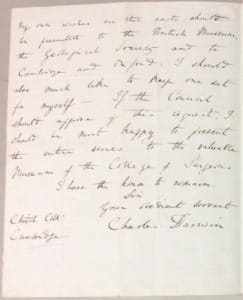 my own wishes are the casts should
be presented to the British Museum,
the Geological Society and to
Cambridge and Oxford. I should
also much like to keep one set
for myself — If the Council
should approve of this request, I
should be most happy to present
the entire series to the valuable
Museum of the College of Surgeons
I have the honor to remain.
Sir
Your obedient servant
Charles Darwin
Christ Coll:
Cambridge